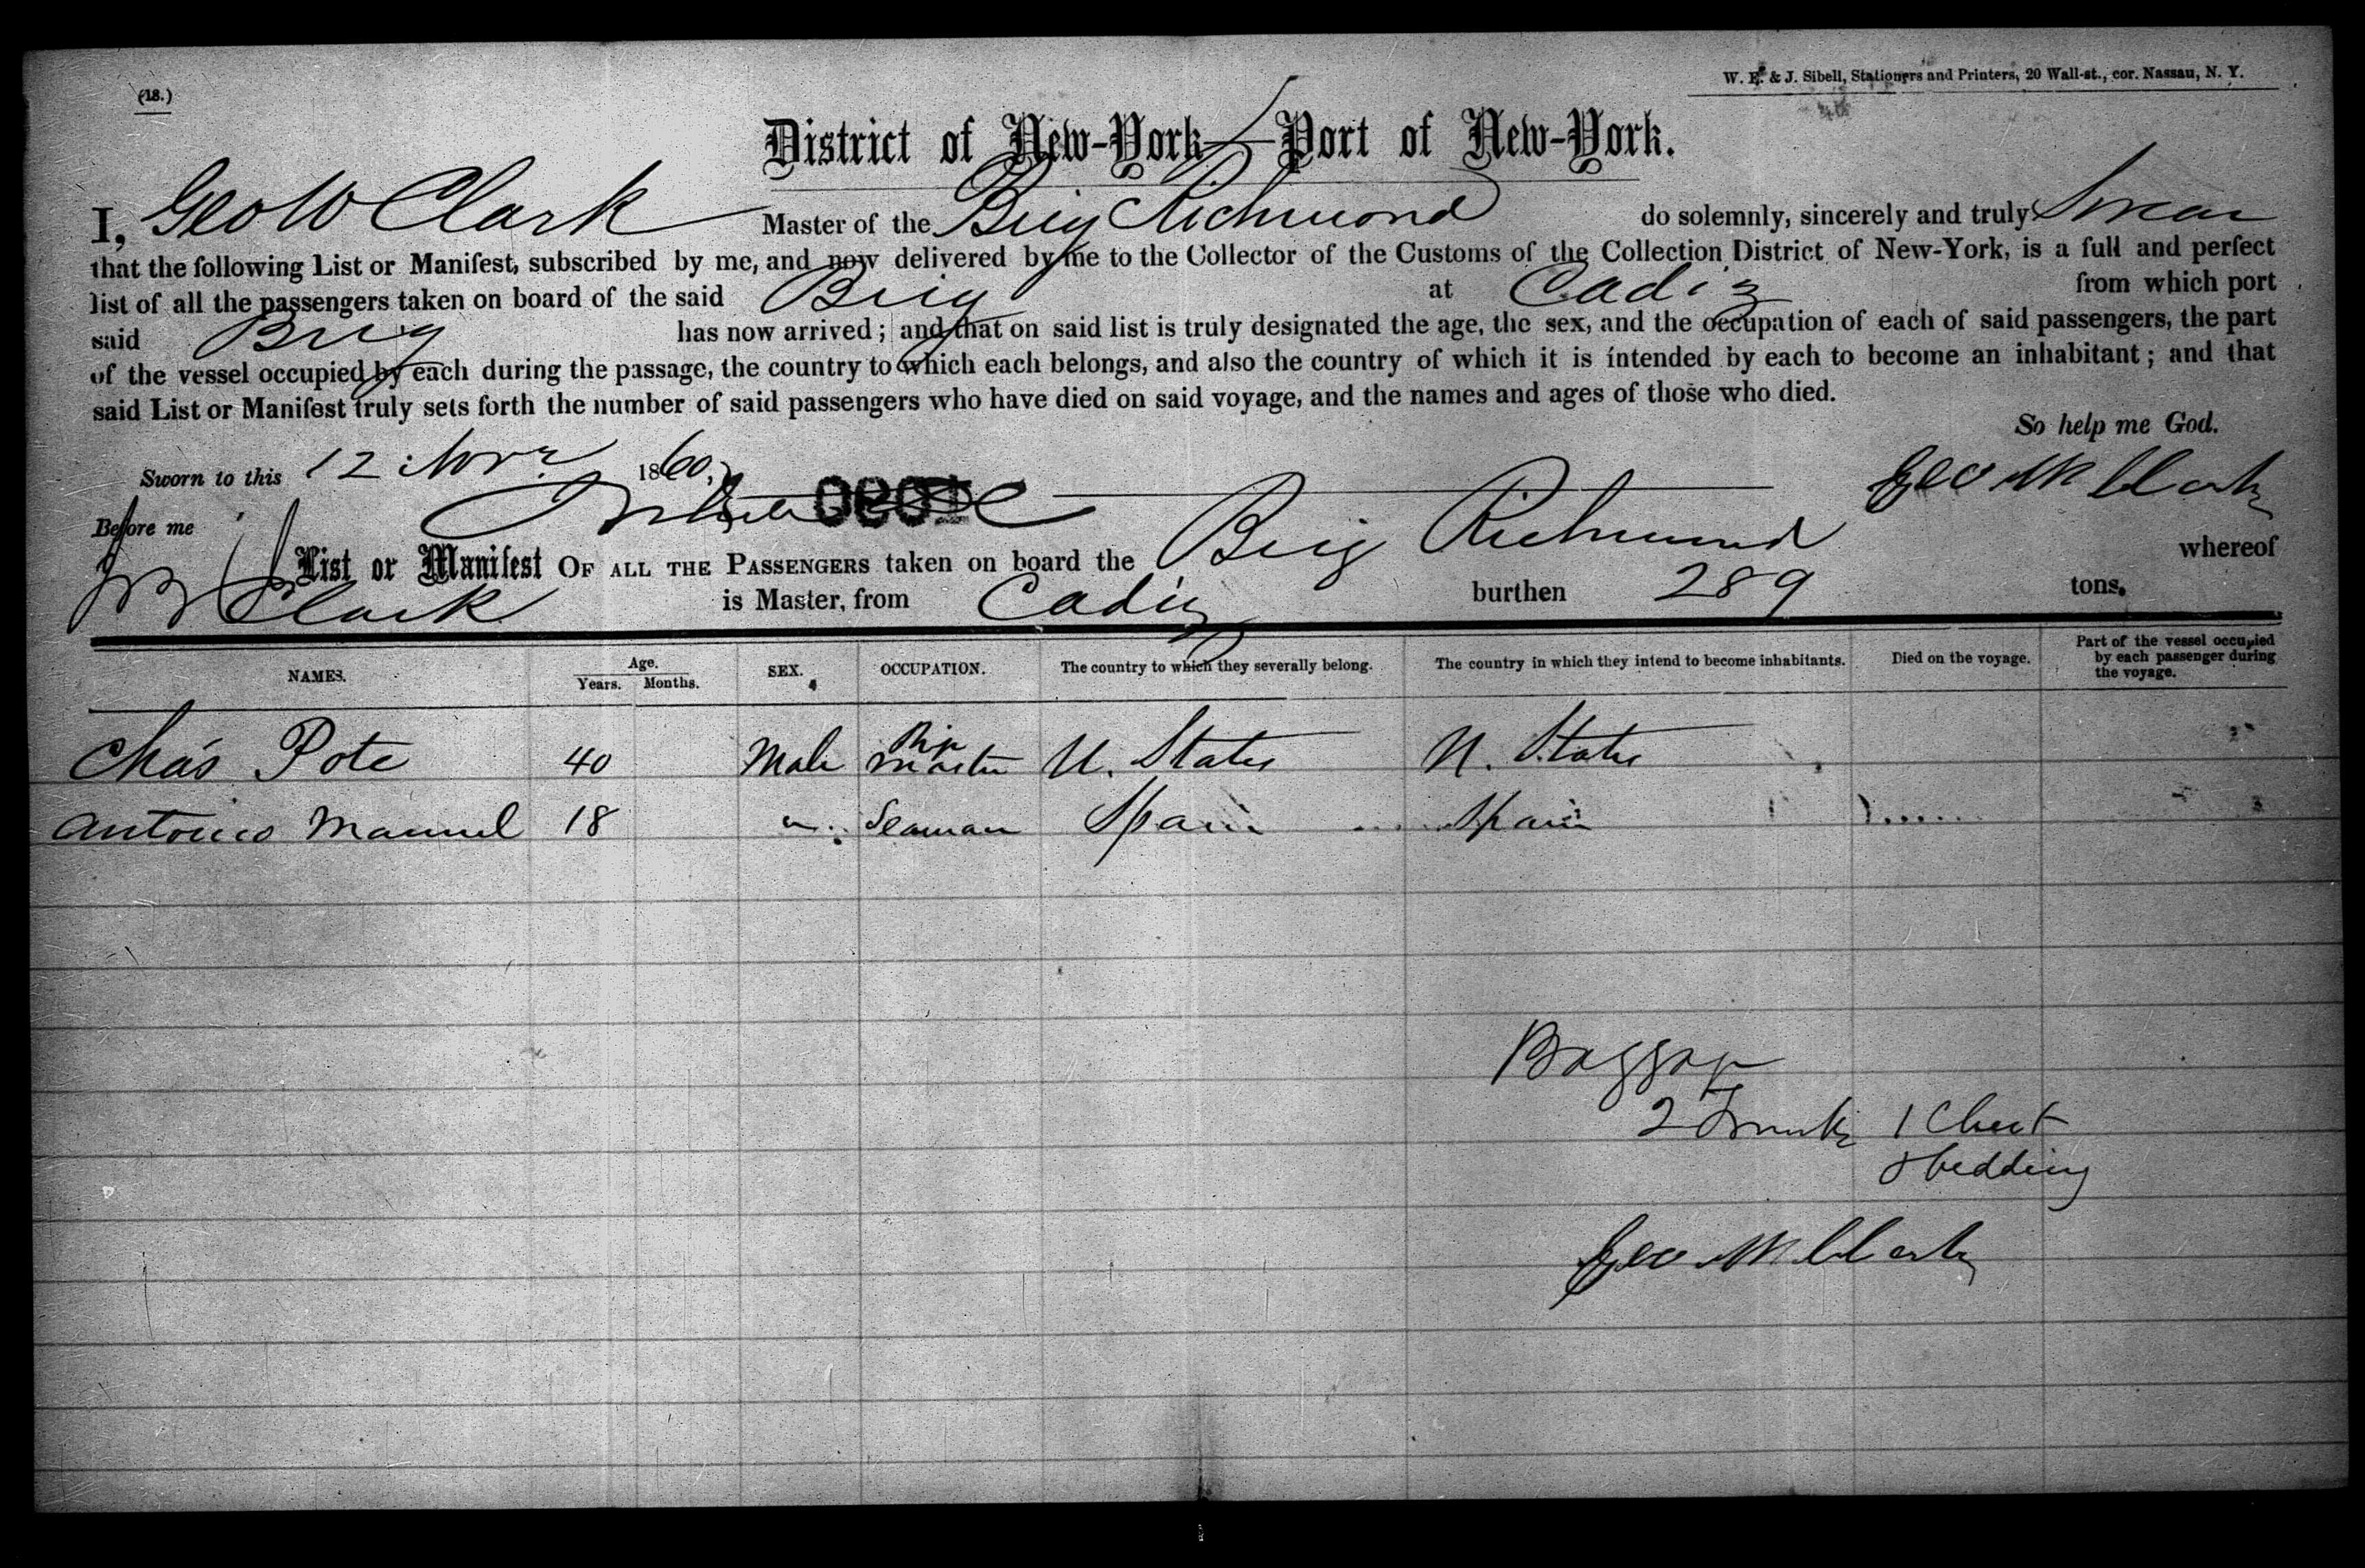 (18.)
W. E. & J. Sibell, Stationers and Printers, 20 Wall-st., cor. Nassau, N. Y.
District of New-York—Port of New-York.
I, Geo W Clark Master of the Brig Richmond do solemnly, sincerely and truly Swear
that the following List or Manifest, subscribed by me, and now delivered by me to the Collector of the Customs of the Collection District of New-York, is a full and perfect
list of all the passengers taken on board of the said Brig at Cadiz from which port
said Brig has now arrived; and that on said list is truly designated the age, the sex, and the occupation of each of said passengers, the part
of the vessel occupied by each during the passage, the country to which each belongs, and also the country of which it is intended by each to become an inhabitant; and that
said List or Manifest truly sets forth the number of said passengers who have died on said voyage, and the names and ages of those who died.
So help me God.
Sworn to this 12 Novr 1860, Geo W Clark
Before me
List or Manifest OF ALL THE PASSENGERS taken on board the Brig Richmond whereof
Clark is Master, from Cadiz burthen 289 tons.
NAMES. Age. Years. Months. SEX. OCCUPATION. The country to which they severally belong. The country in which they intend to become inhabitants. Died on the voyage. Part of the vessel occupied by each passenger during the voyage.
Chas Pote 40 Male Ship Master U. States U. States
Antonio Manuel 18 " Seaman Spain Spain
Baggage
2 Trunks 1 Chest
& bedding
Geo W Clark